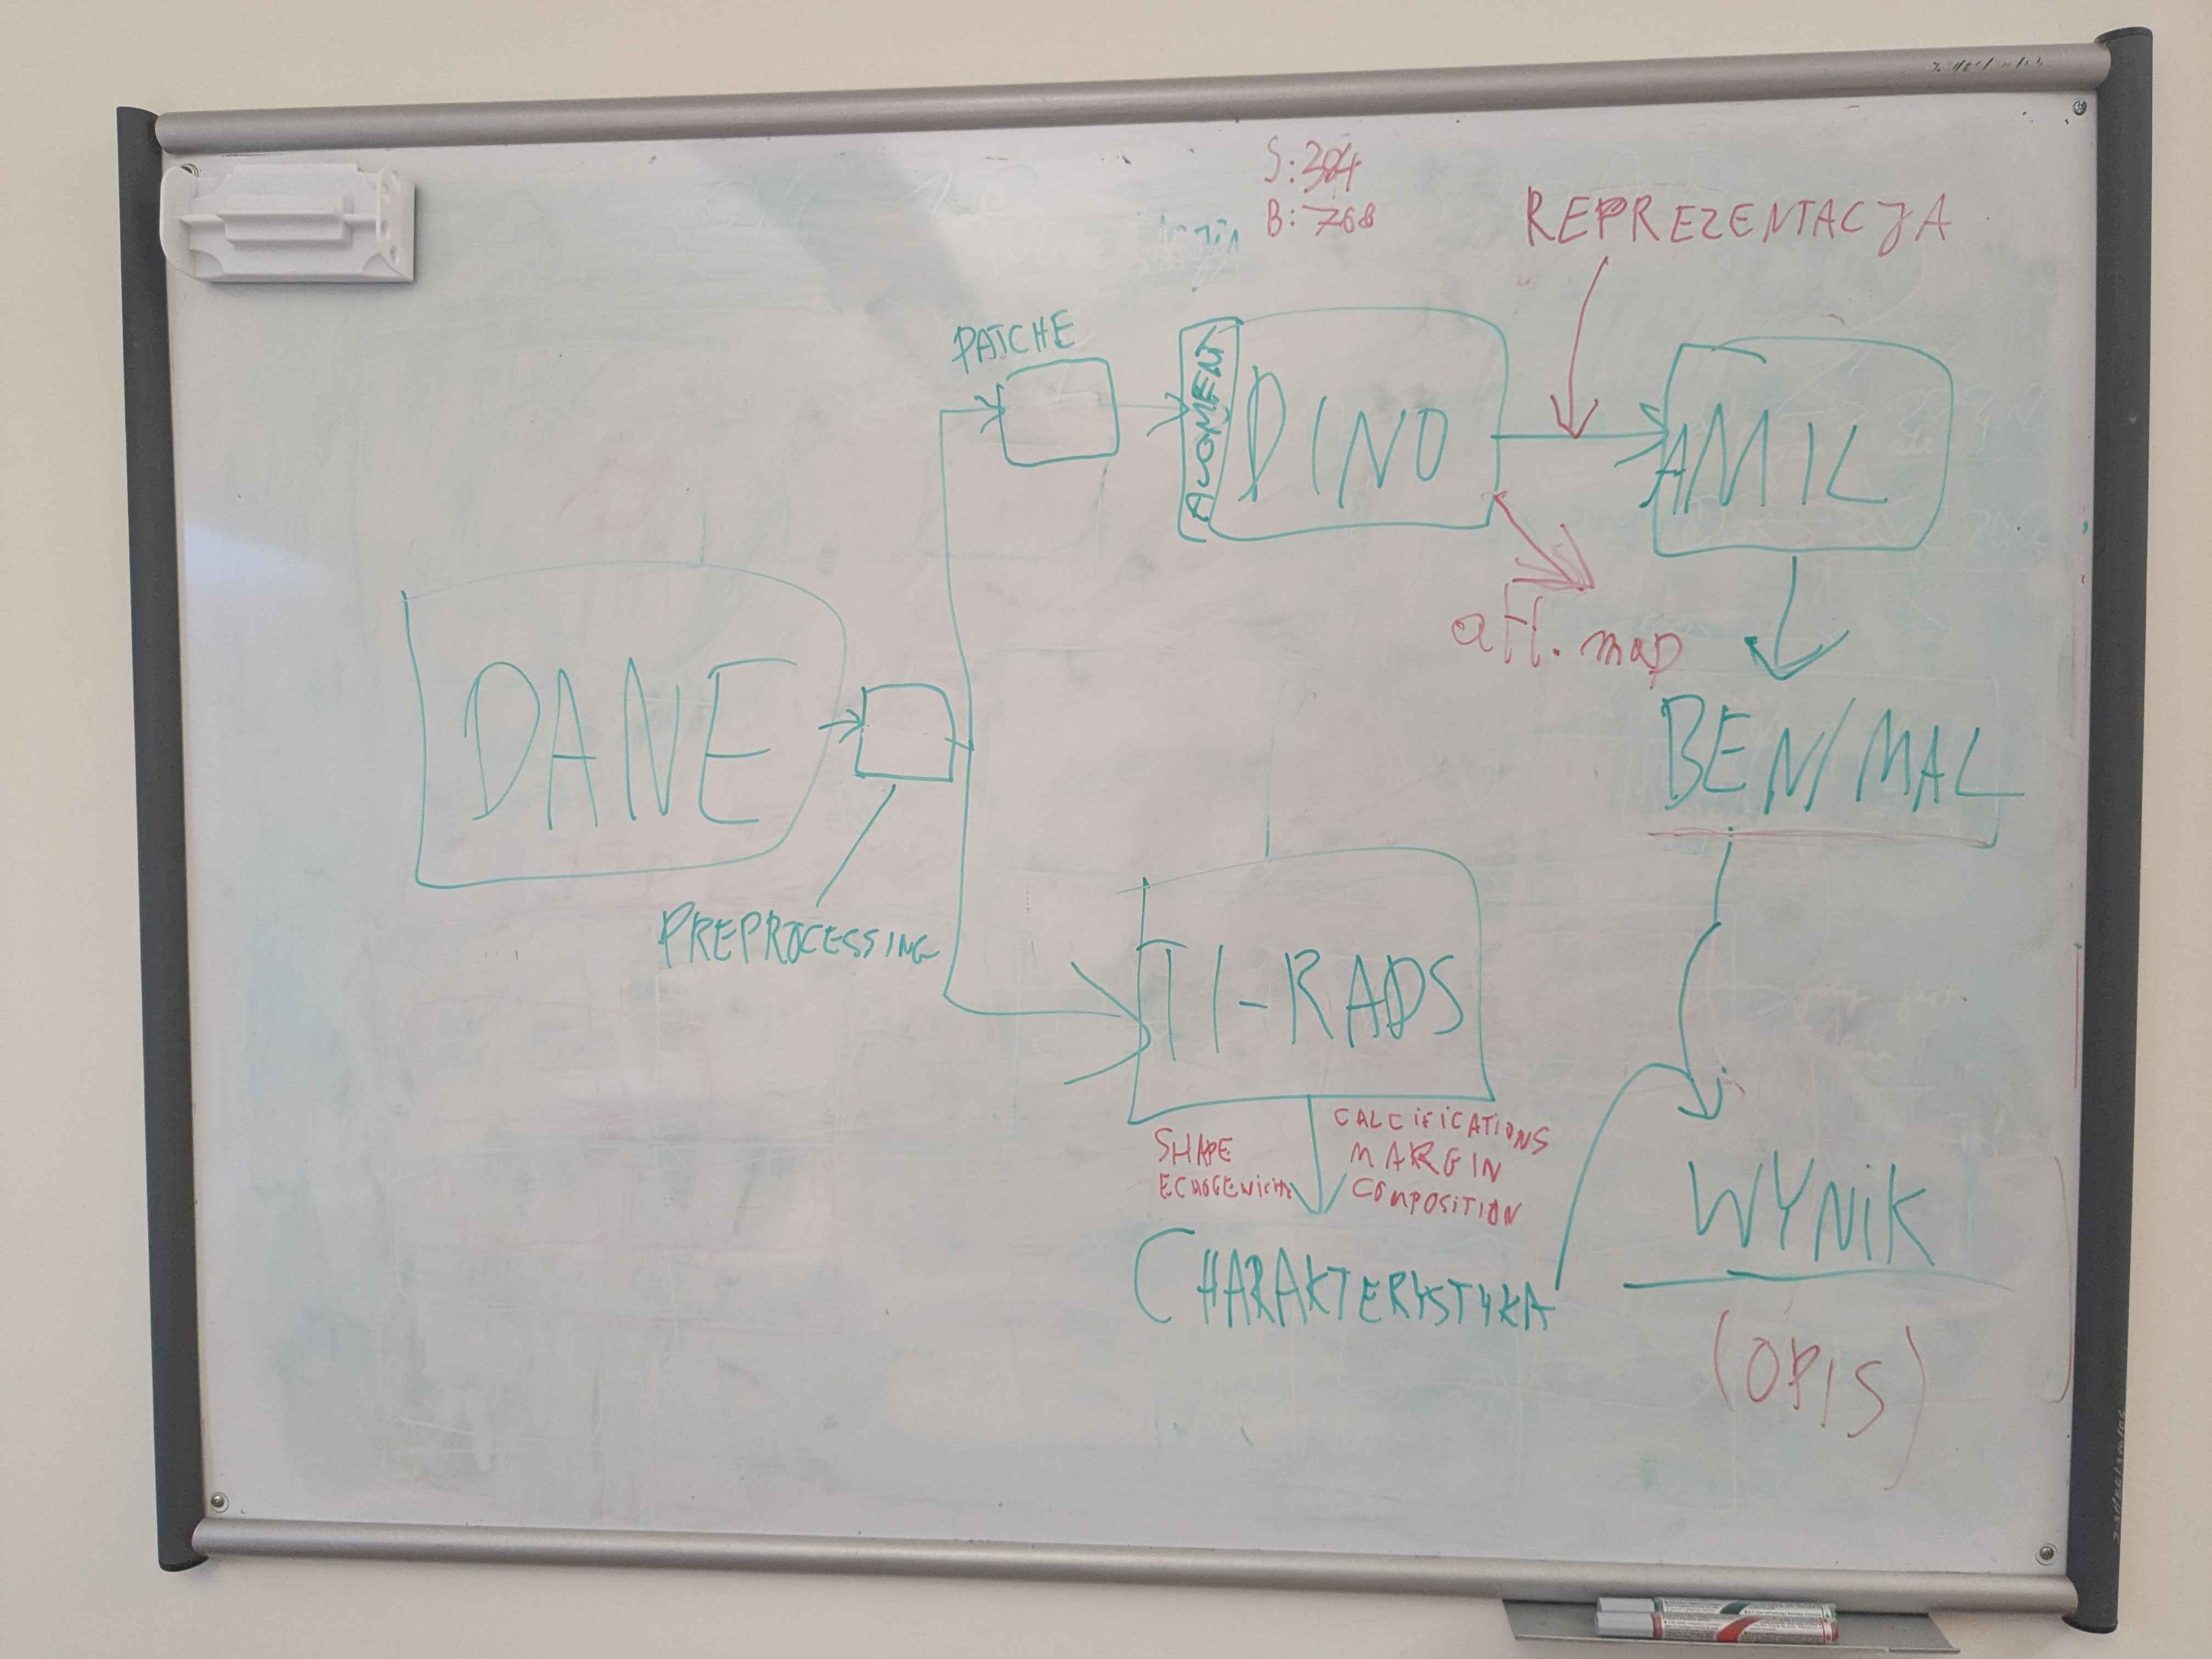 S: 384
B: 768
REPREZENTACJA
PATCHE
AUGMENT
DINO
AMIL
att. map
DANE
BEN/MAL
PREPROCESSING
TI-RADS
SHAPE
ECHOGENICITY
CALCIFICATIONS
MARGIN
COMPOSITION
CHARAKTERYSTYKA
WYNIK
(OPIS)